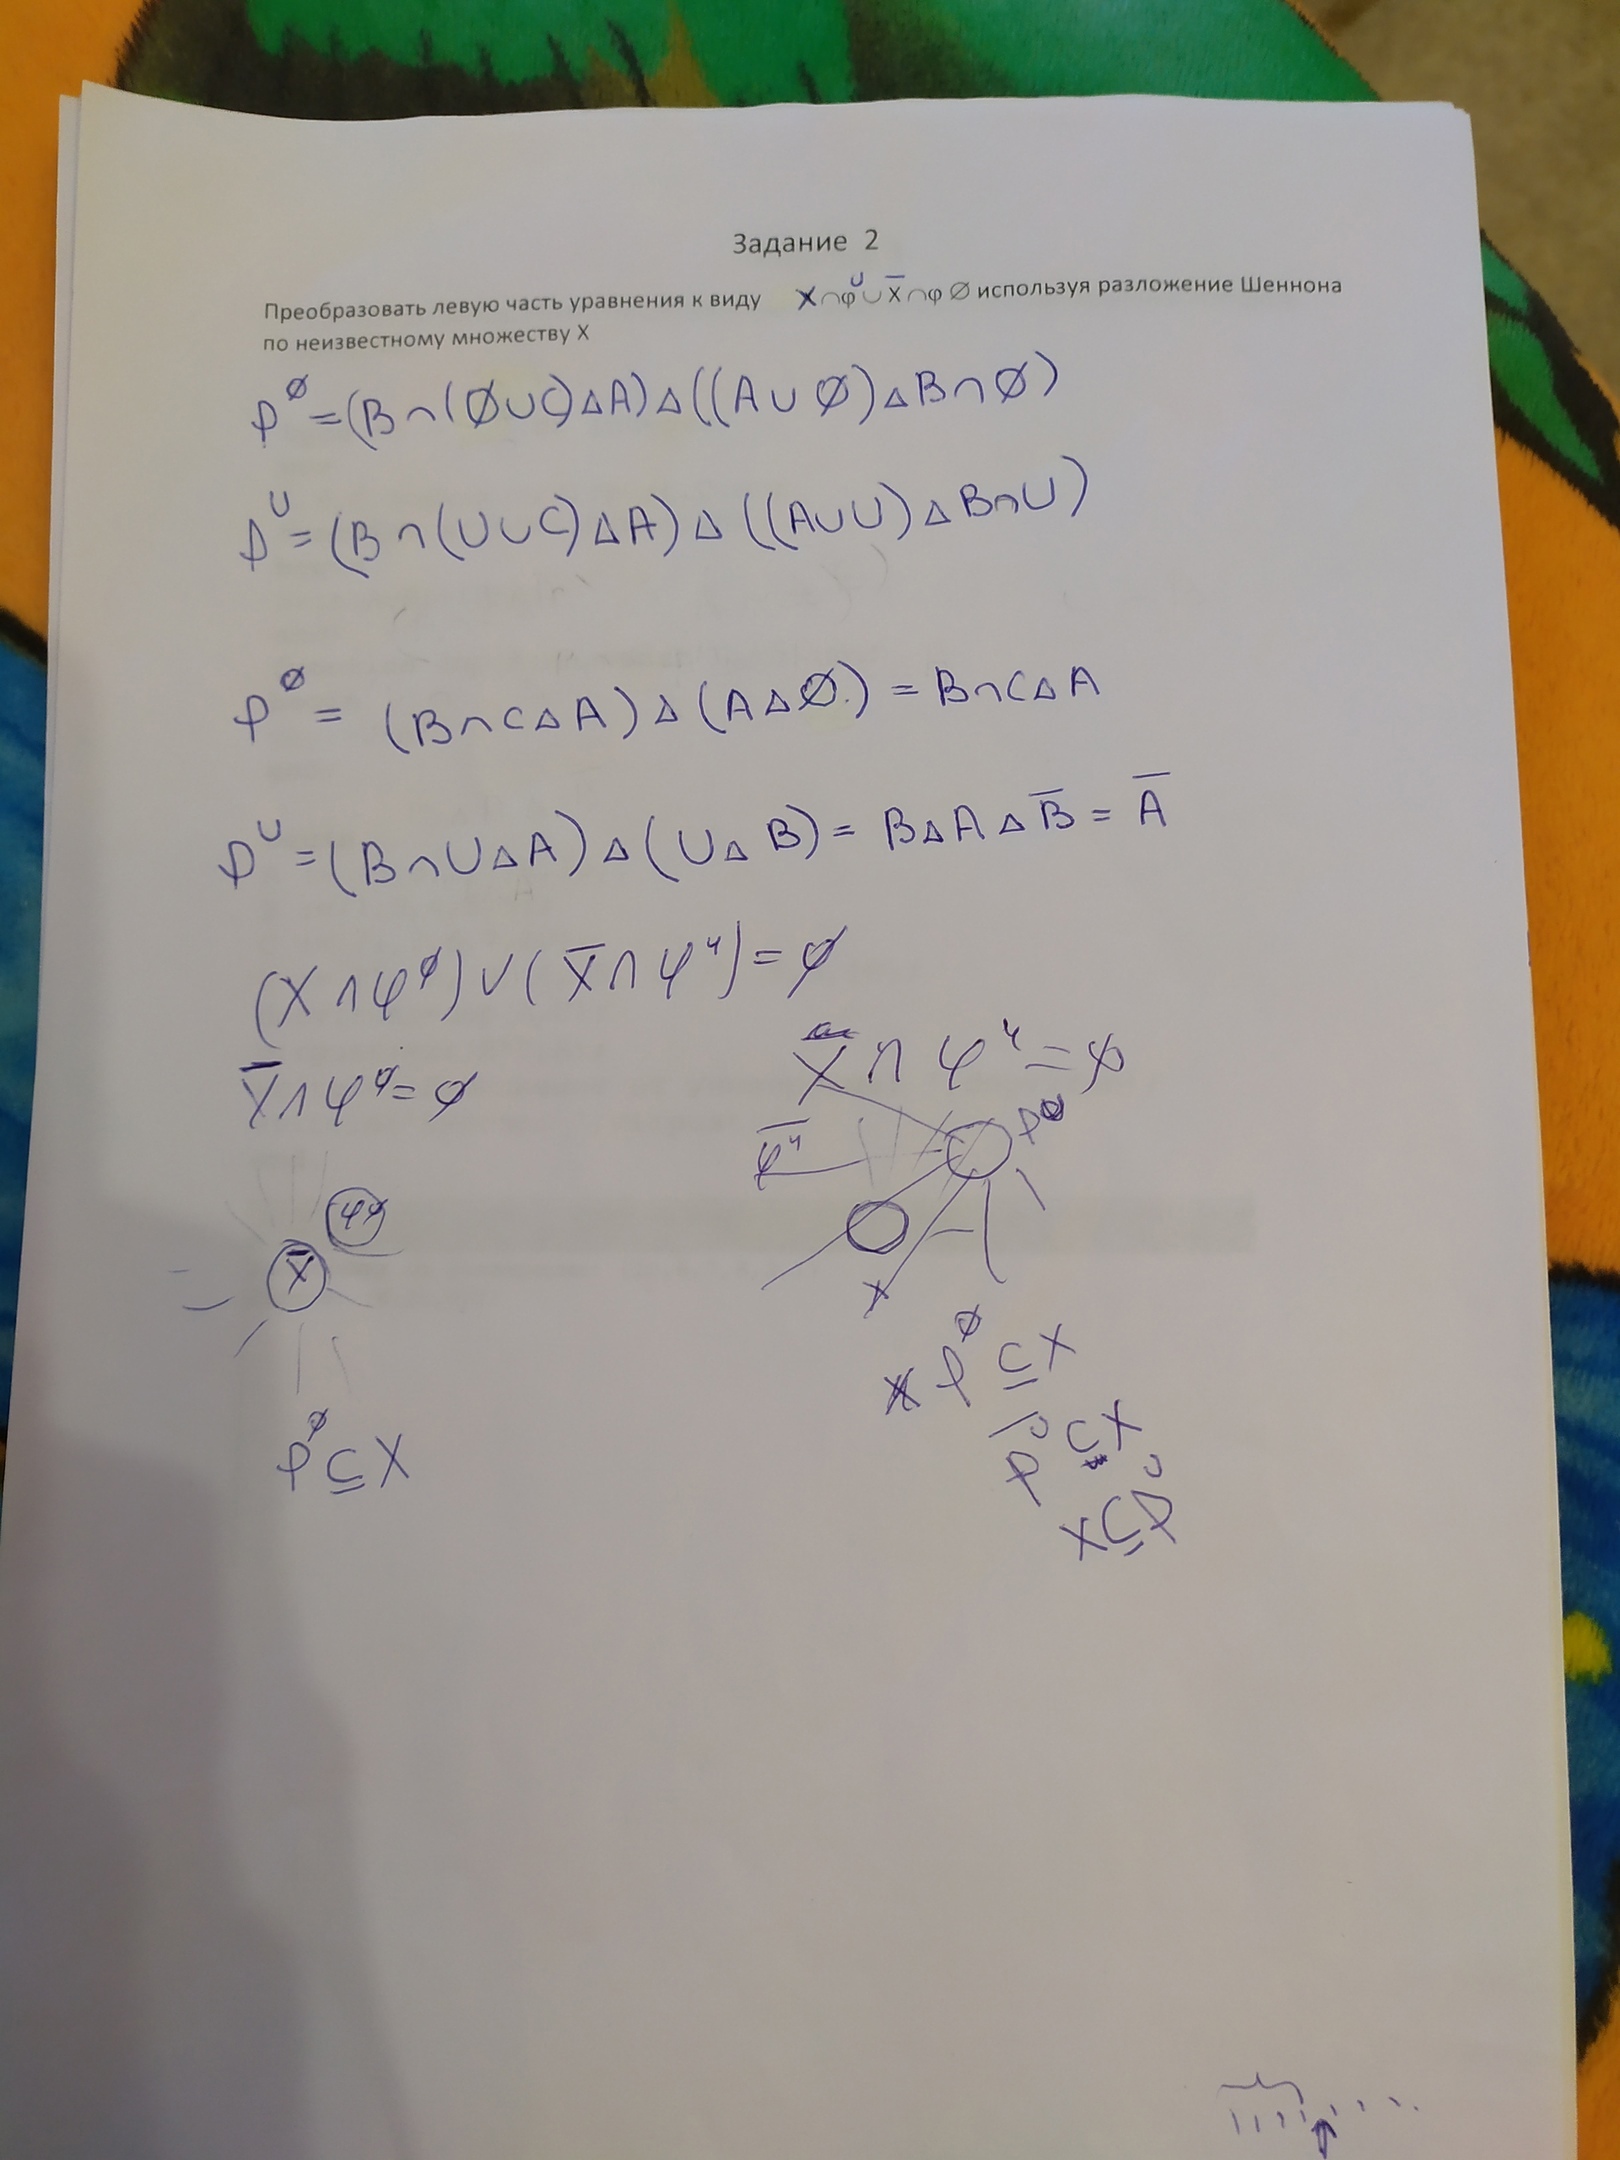 Задание 2
Преобразовать левую часть уравнения к виду X∩φ^U∪X̅∩φ^∅ используя разложение Шеннона
по неизвестному множеству X
φ^∅=(B∩(∅∪C)△A)△((A∪∅)△B∩∅)
φ^U=(B∩(U∪C)△A)△((A∪U)△B∩U)
φ^∅=(B∩C△A)△(A△∅)=B∩C△A
φ^U=(B∩U△A)△(U△B)=B△A△B̅=A̅
(X∩φ^∅)∪(X̅∩φ^U)=∅
X̅∩φ^∅=∅
X∩φ^U=∅
φ^U
φ̅^U
φ^∅
X̅
X
φ^∅⊆X
φ^∅⊆X
φ̅^U⊂X
X⊆φ̅^U